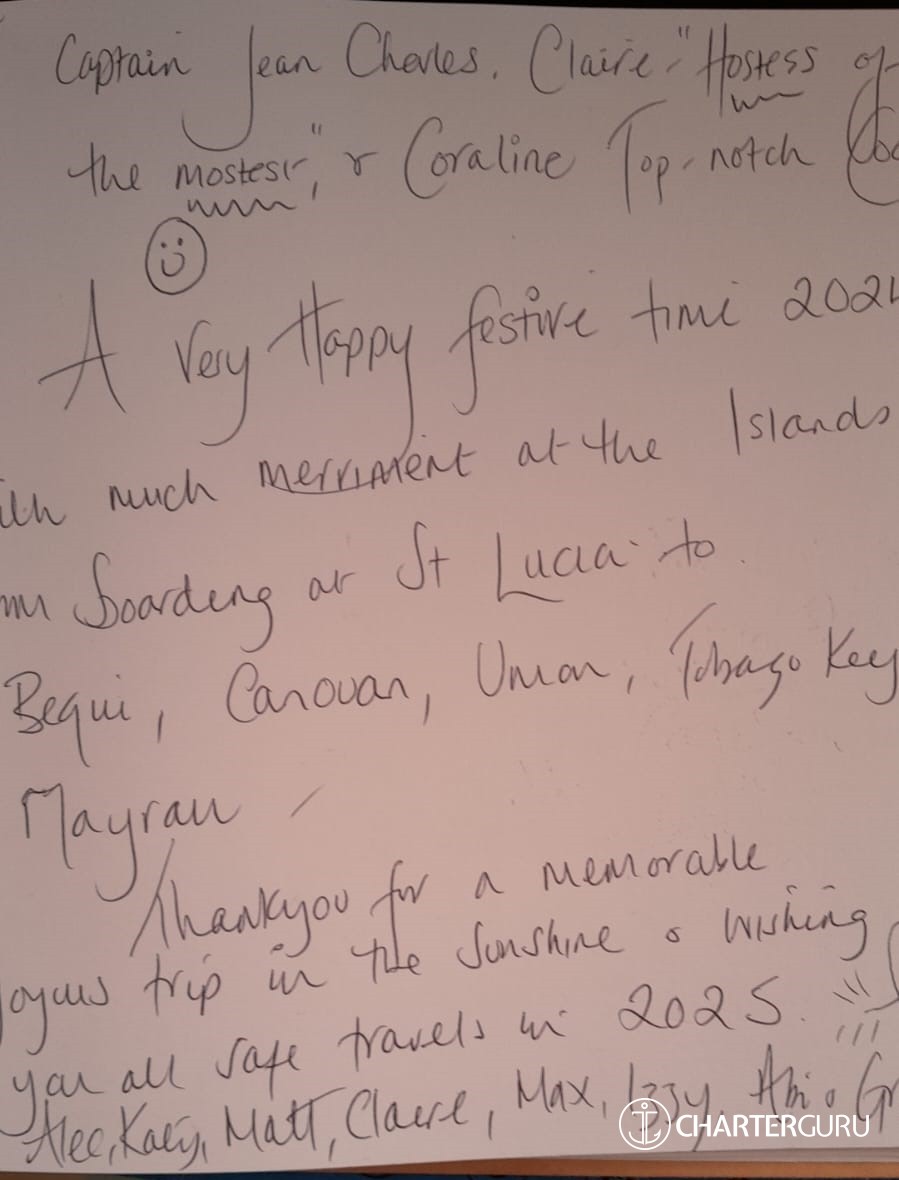 Captain Jean Charles, Claire "Hostess of
the mostest", & Coraline Top-notch
A Very Happy festive time 2024
much merriment at the Islands
boarding at St Lucia to
Bequi, Canouan, Union, Tobago Key
Mayrau
Thankyou for a memorable
joyous trip in the sunshine & wishing
you all safe travels in 2025.
Alec, Kaey, Matt, Claire, Max, Izzy, Abi &
CHARTERGURU